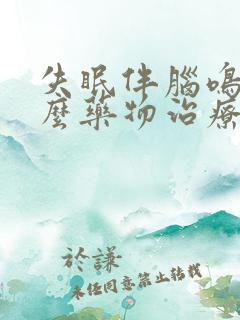 失眠伴腦鳴
麼藥物治療
於謙
未任同意禁止轉載